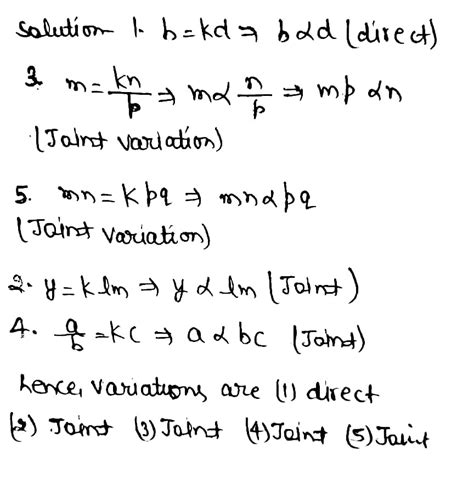 Solution 1. b = kd ⇒ b ∝ d (direct)
3. m = kn/p ⇒ m ∝ n/p ⇒ mp ∝ n
(Joint variation)
5. mn = kpq ⇒ mn ∝ pq
(Joint variation)
2. y = klm ⇒ y ∝ lm (Joint)
4. a/b = kc ⇒ a ∝ bc (Joint)
hence, variations are (1) direct
(2) Joint (3) Joint (4) Joint (5) Joint